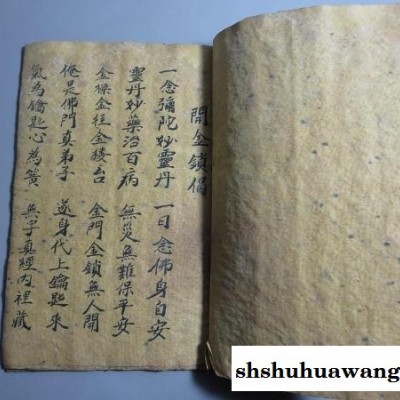 開金鎖偈
一念彌陀妙靈丹 一日念佛身自安
靈丹妙藥治百病 無災無難保平安
金樑金柱金接台 金門金鎖無人開
俺是佛門真弟子 遂身代上鑰匙來
氣為鑰匙心為簧 無字真經內裡藏
shshuhuawang